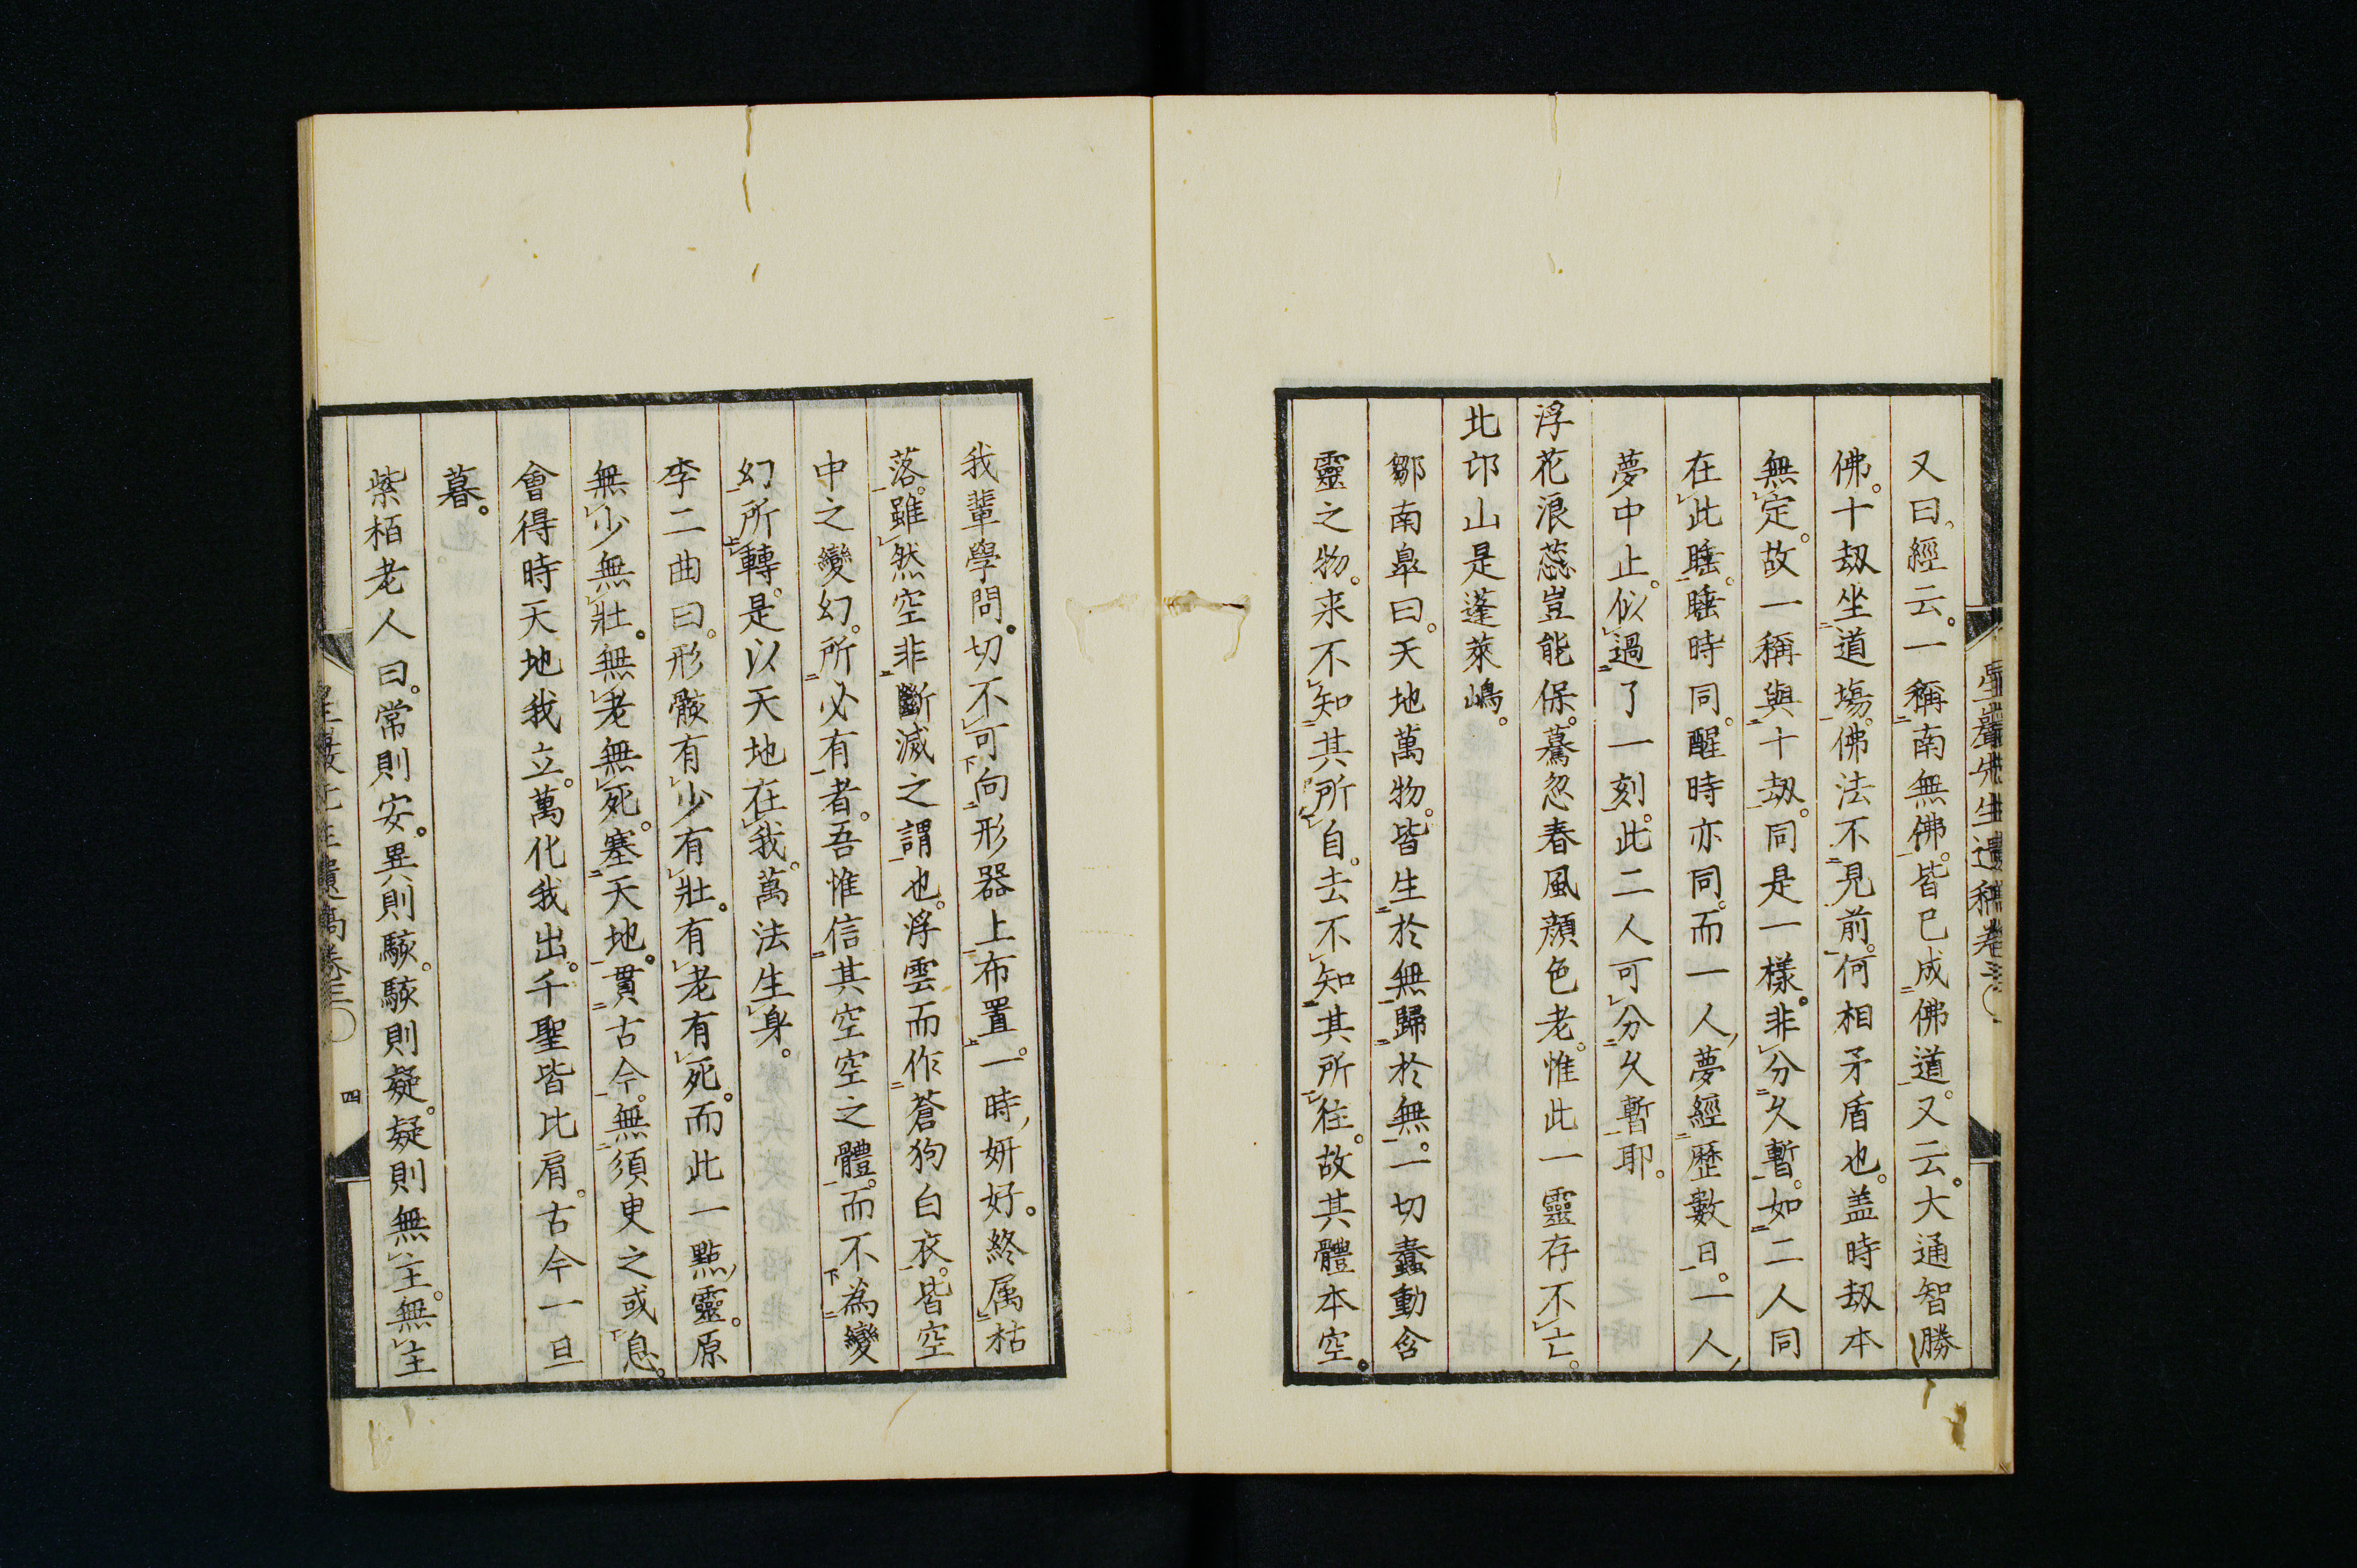 又曰經云。一稱南無佛。皆已成佛道。又云。大通智勝
佛。十刼坐道場。佛法不見前。何相矛盾也。盖時刼本
無定。故一稱與十刼。同是一樣。非分久暫。如二人同
在此睡。睡時同。醒時亦同。而一人夢經歷數日。一人
夢中止。似過了一刻。此二人可分久暫耶。
浮花浪蕊豈能保。驀忽春風顏色老。惟此一靈存不亡。
北邙山是蓬萊嶋。
鄒南皐曰。天地萬物。皆生於無。歸於無。一切蠢動含
靈之物。来不知其所自。去不知其所往。故其體本空。
我輩學問。切不可向形器上布置。一時妍好。終属枯
落。雖然空非斷滅之謂也。浮雲而作蒼狗白衣。皆空
中之變幻。所必有者。吾惟信其空空之體。而不為變
幻所轉。是以天地在我。萬法生身。
李二曲曰。形骸有少有壯。有老有死。而此一點靈。原
無少無壯。無老無死。塞天地。貫古今。無須臾之或息。
會得時天地我立。萬化我出。千聖皆比肩。古今一旦
暮。
紫栢老人曰。常則安。異則駭。駭則疑。疑則無主。無主
四